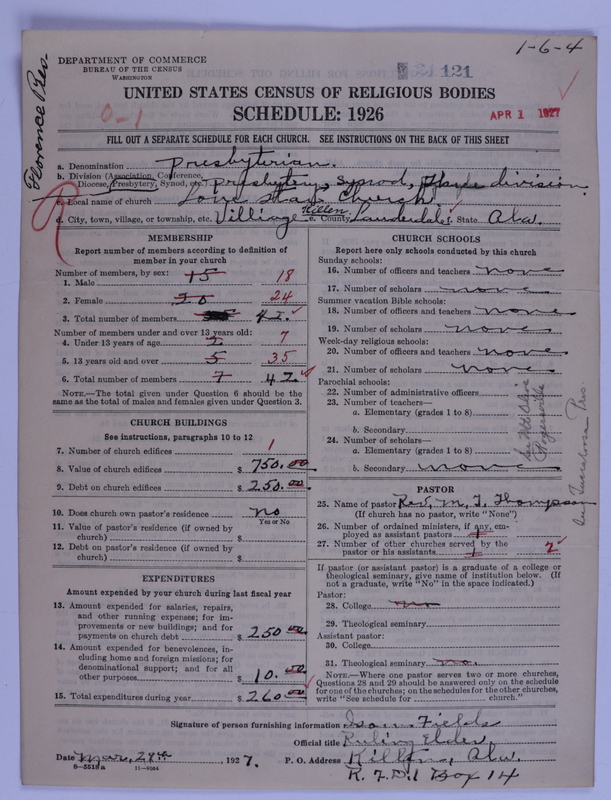 1-6-4
DEPARTMENT OF COMMERCE
BUREAU OF THE CENSUS
WASHINGTON
121
UNITED STATES CENSUS OF RELIGIOUS BODIES
SCHEDULE: 1926
APR 1 1927
Florence Pres
0-1
FILL OUT A SEPARATE SCHEDULE FOR EACH CHURCH. SEE INSTRUCTIONS ON THE BACK OF THIS SHEET
a. Denomination Presbyterian.
b. Division (Association, Conference, Diocese, Presbytery, Synod, etc.) Presbytery, Synod, division.
c. Local name of church Lone Star Church
d. City, town, village, or township, etc. Village Killen e. County Lauderdale f. State Ala.
MEMBERSHIP
Report number of members according to definition of
member in your church
Number of members, by sex:
1. Male 15 18
2. Female 20 24
3. Total number of members 42
Number of members under and over 13 years old:
4. Under 13 years of age 2 7
5. 13 years old and over 5 35
6. Total number of members 7 42
NOTE.—The total given under Question 6 should be
same as the total of males and females given under Question 3.
CHURCH BUILDINGS
See instructions, paragraphs 10 to 12
7. Number of church edifices 1
8. Value of church edifices $ 750.00
9. Debt on church edifices $ 250.00
10. Does church own pastor's residence no
Yes or No
11. Value of pastor's residence (if owned by
church) $
12. Debt on pastor's residence (if owned by
church) $
EXPENDITURES
Amount expended by your church during last fiscal year
13. Amount expended for salaries, repairs,
and other running expenses; for im-
provements or new buildings; and for
payments on church debt $ 250.00
14. Amount expended for benevolences, in-
cluding home and foreign missions; for
denominational support; and for all
other purposes $ 10.00
15. Total expenditures during year $ 260.00
CHURCH SCHOOLS
Report here only schools conducted by this church
Sunday schools:
16. Number of officers and teachers none
17. Number of scholars none
Summer vacation Bible schools:
18. Number of officers and teachers none
19. Number of scholars none
Week-day religious schools:
20. Number of officers and teachers none
21. Number of scholars none
Parochial schools:
22. Number of administrative officers
23. Number of teachers—
a. Elementary (grades 1 to 8)
b. Secondary
24. Number of scholars—
a. Elementary (grades 1 to 8)
b. Secondary none
Rogersville
Tuscaloosa Pres.
PASTOR
25. Name of pastor Rev. M. T. Thompson
(If church has no pastor, write "None")
26. Number of ordained ministers, if any, em-
ployed as assistant pastors 1
27. Number of other churches served by the
pastor or his assistants 1 2
If pastor (or assistant pastor) is a graduate of a college or
theological seminary, give name of institution below. (If
not a graduate, write "No" in the space indicated.)
Pastor:
28. College no
29. Theological seminary
Assistant pastor:
30. College
31. Theological seminary no.
NOTE.—Where one pastor serves two or more churches,
Questions 28 and 29 should be answered only on the schedule
for one of the churches; on the schedules for the other churches,
write "See schedule for church."
Signature of person furnishing information Fields
Official title Ruling Elder
Date Mar. 29th, 1927. P. O. Address Killen, Ala.
8-5518a 11-9064
R.F.D. 1 Box 14